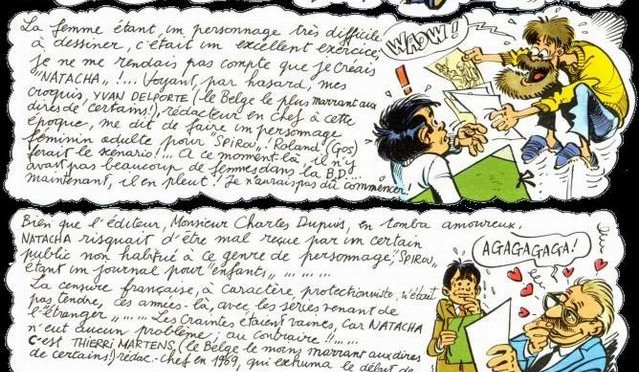 La femme étant un personnage très difficile
à dessiner, c'était un excellent exercice,
je ne me rendais pas compte que je créais
"NATACHA"!... (Voyant, par hasard, mes
croquis, YVAN DELPORTE (le Belge le plus marrant aux
dires de certains!), rédacteur en chef à cette
époque, me dit de faire un personnage
féminin adulte pour SPIROU. Roland (Gos)
ferait le scénario!... A ce moment-là, il n'y
avait pas beaucoup de femmes dans la B.D...
maintenant, il en pleut! Je n'aurais pas dû commencer!
WAOW!
!
Bien que l'éditeur, Monsieur Charles Dupuis, en tomba amoureux,
NATACHA risquait d'être mal reçue par un certain
public non habitué à ce genre de personnage, SPIROU,
étant un journal pour "enfants"... ... ...
La censure française, à caractère protectionniste, n'était
pas tendre, ces années-là, avec les séries venant de
l'étranger"... ... Les craintes étaient vaines, car NATACHA
n'eut aucun problème, au contraire!!... ...
C'est THIERRI MARTENS, (le Belge le moins marrant aux dires
de certains!) rédac-chef en 1969, qui exhuma le début de
AGAGAGAGA!